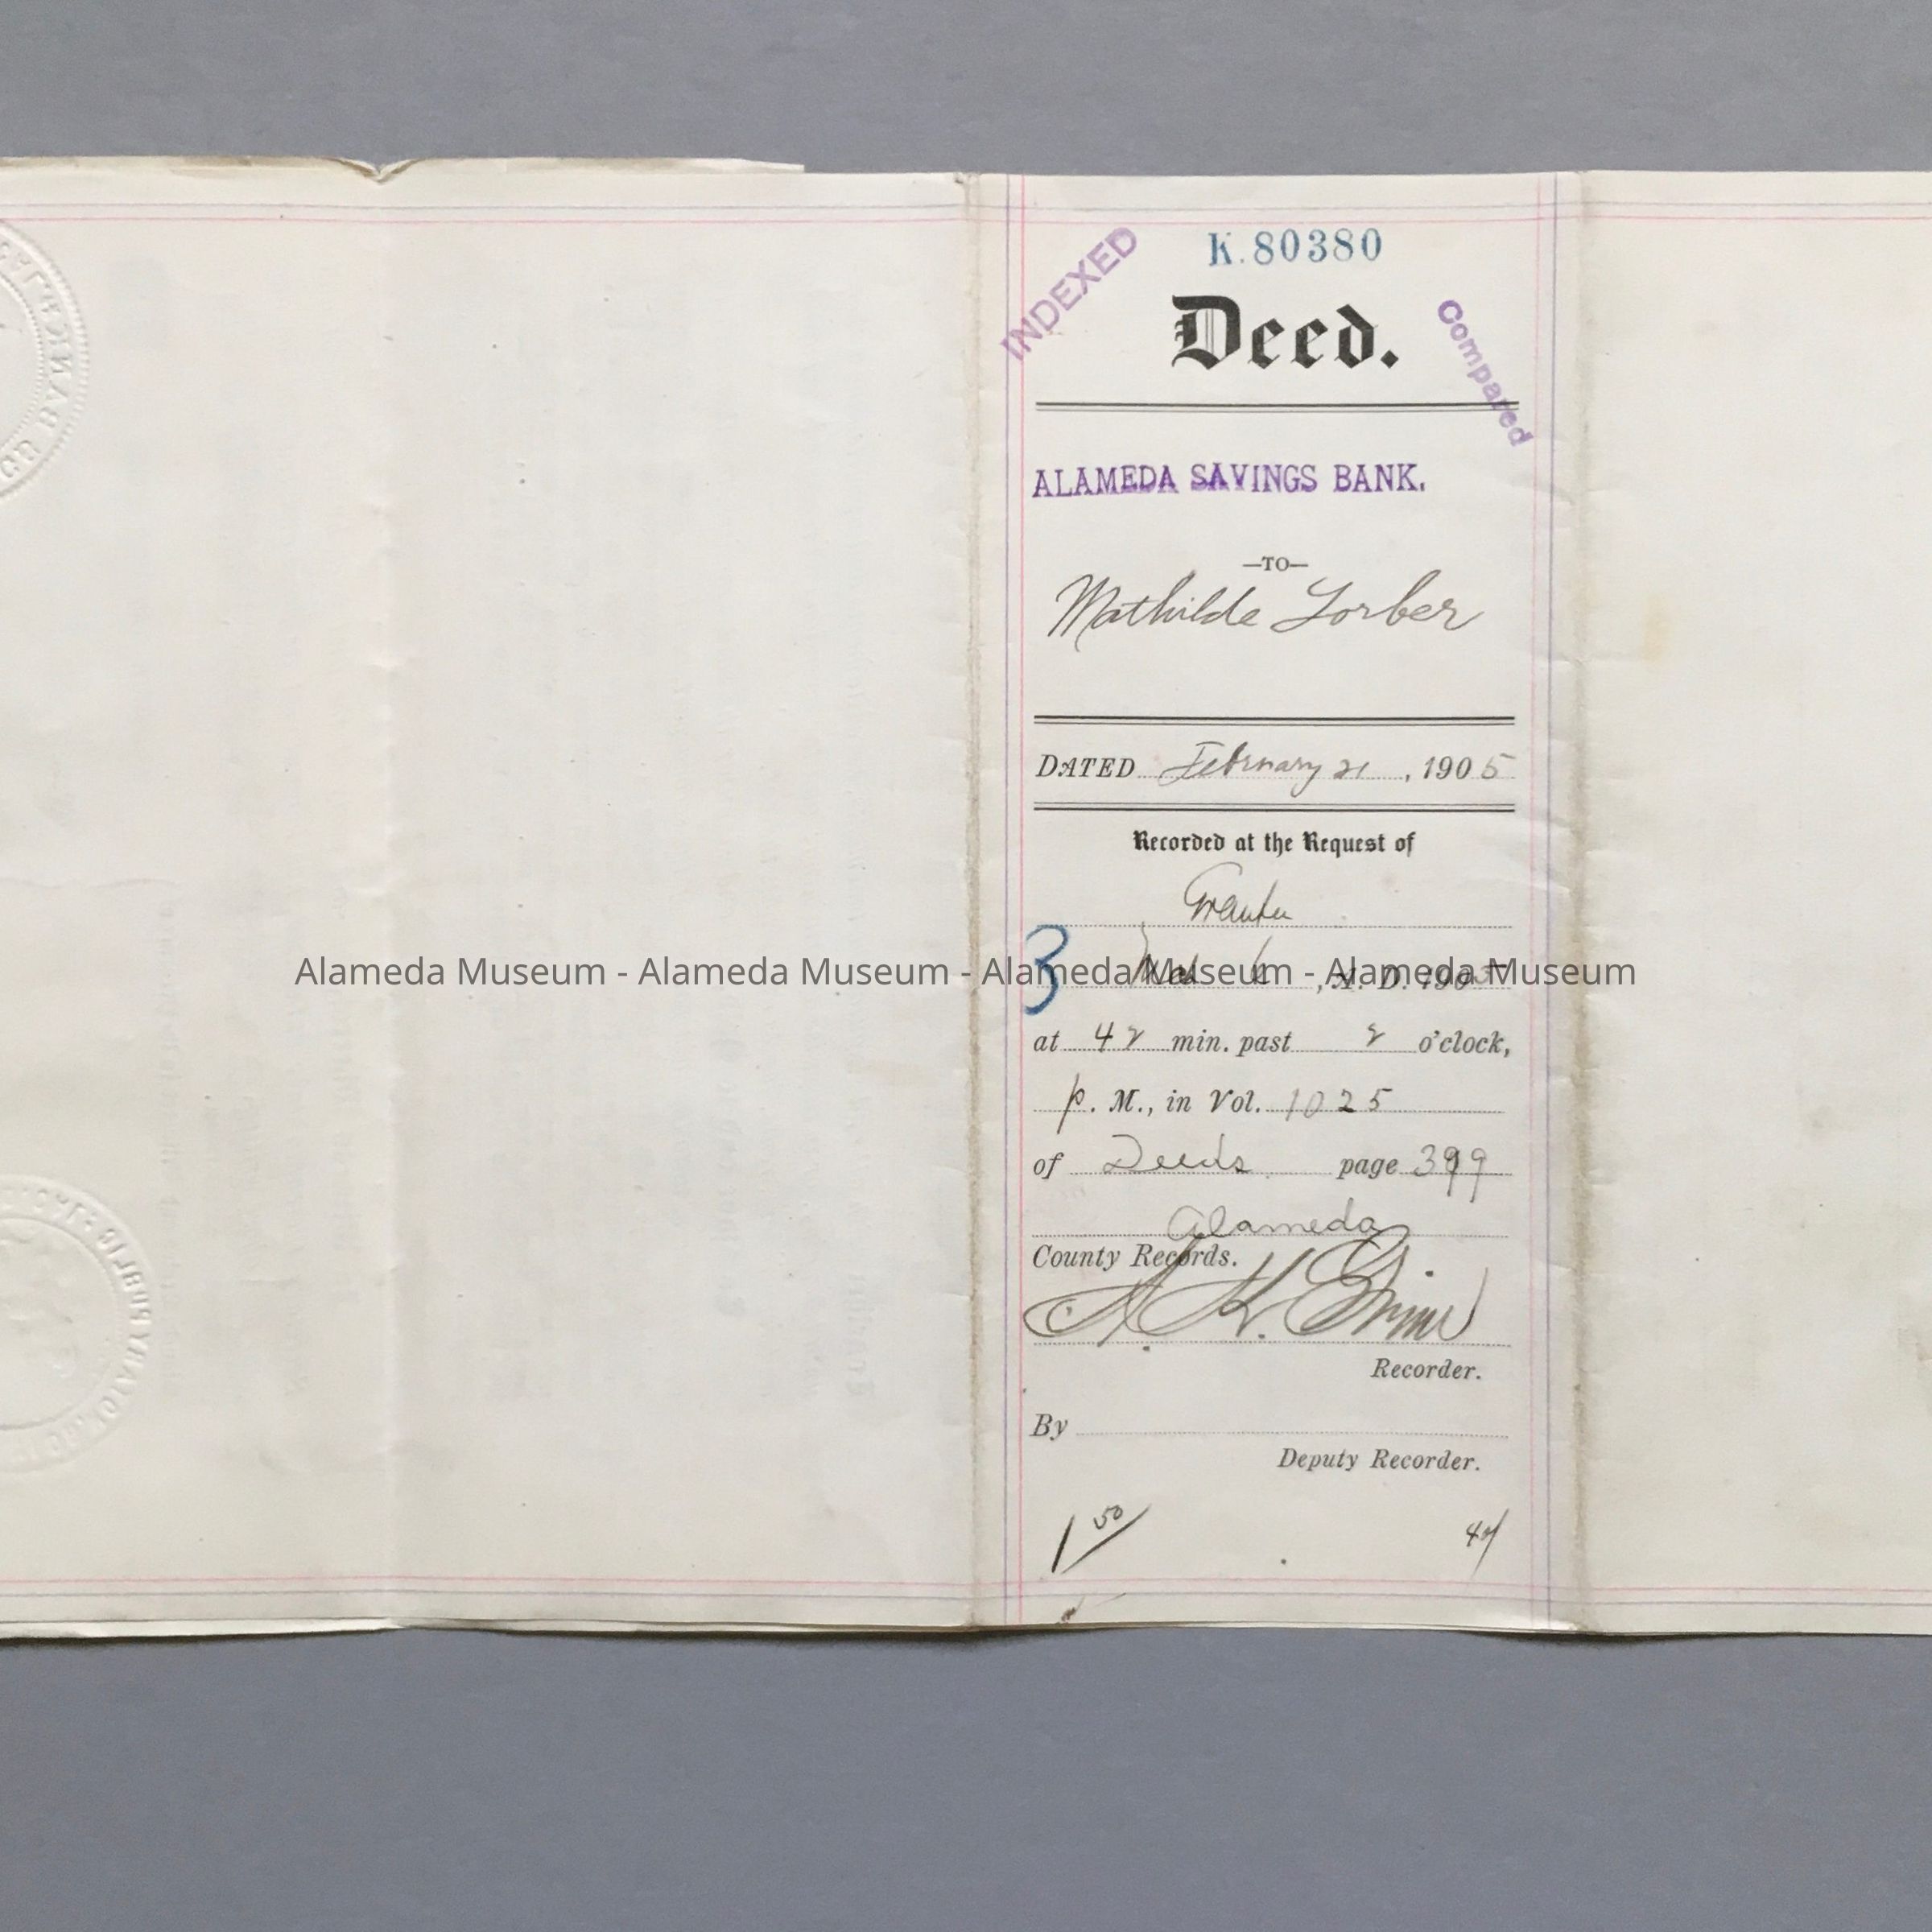 K.80380
INDEXED
Deed.
Compared
ALAMEDA SAVINGS BANK.
—TO—
Mathilde Lorber
DATED February 21, 1905
Recorded at the Request of
Grantee
3
, A. D. 1905
Alameda Museum - Alameda Museum - Alameda Museum - Alameda Museum
at 42 min. past 2 o'clock,
p. M., in Vol. 1025
of Deeds page 399
Alameda
County Records.
Recorder.
By
Deputy Recorder.
1 50/